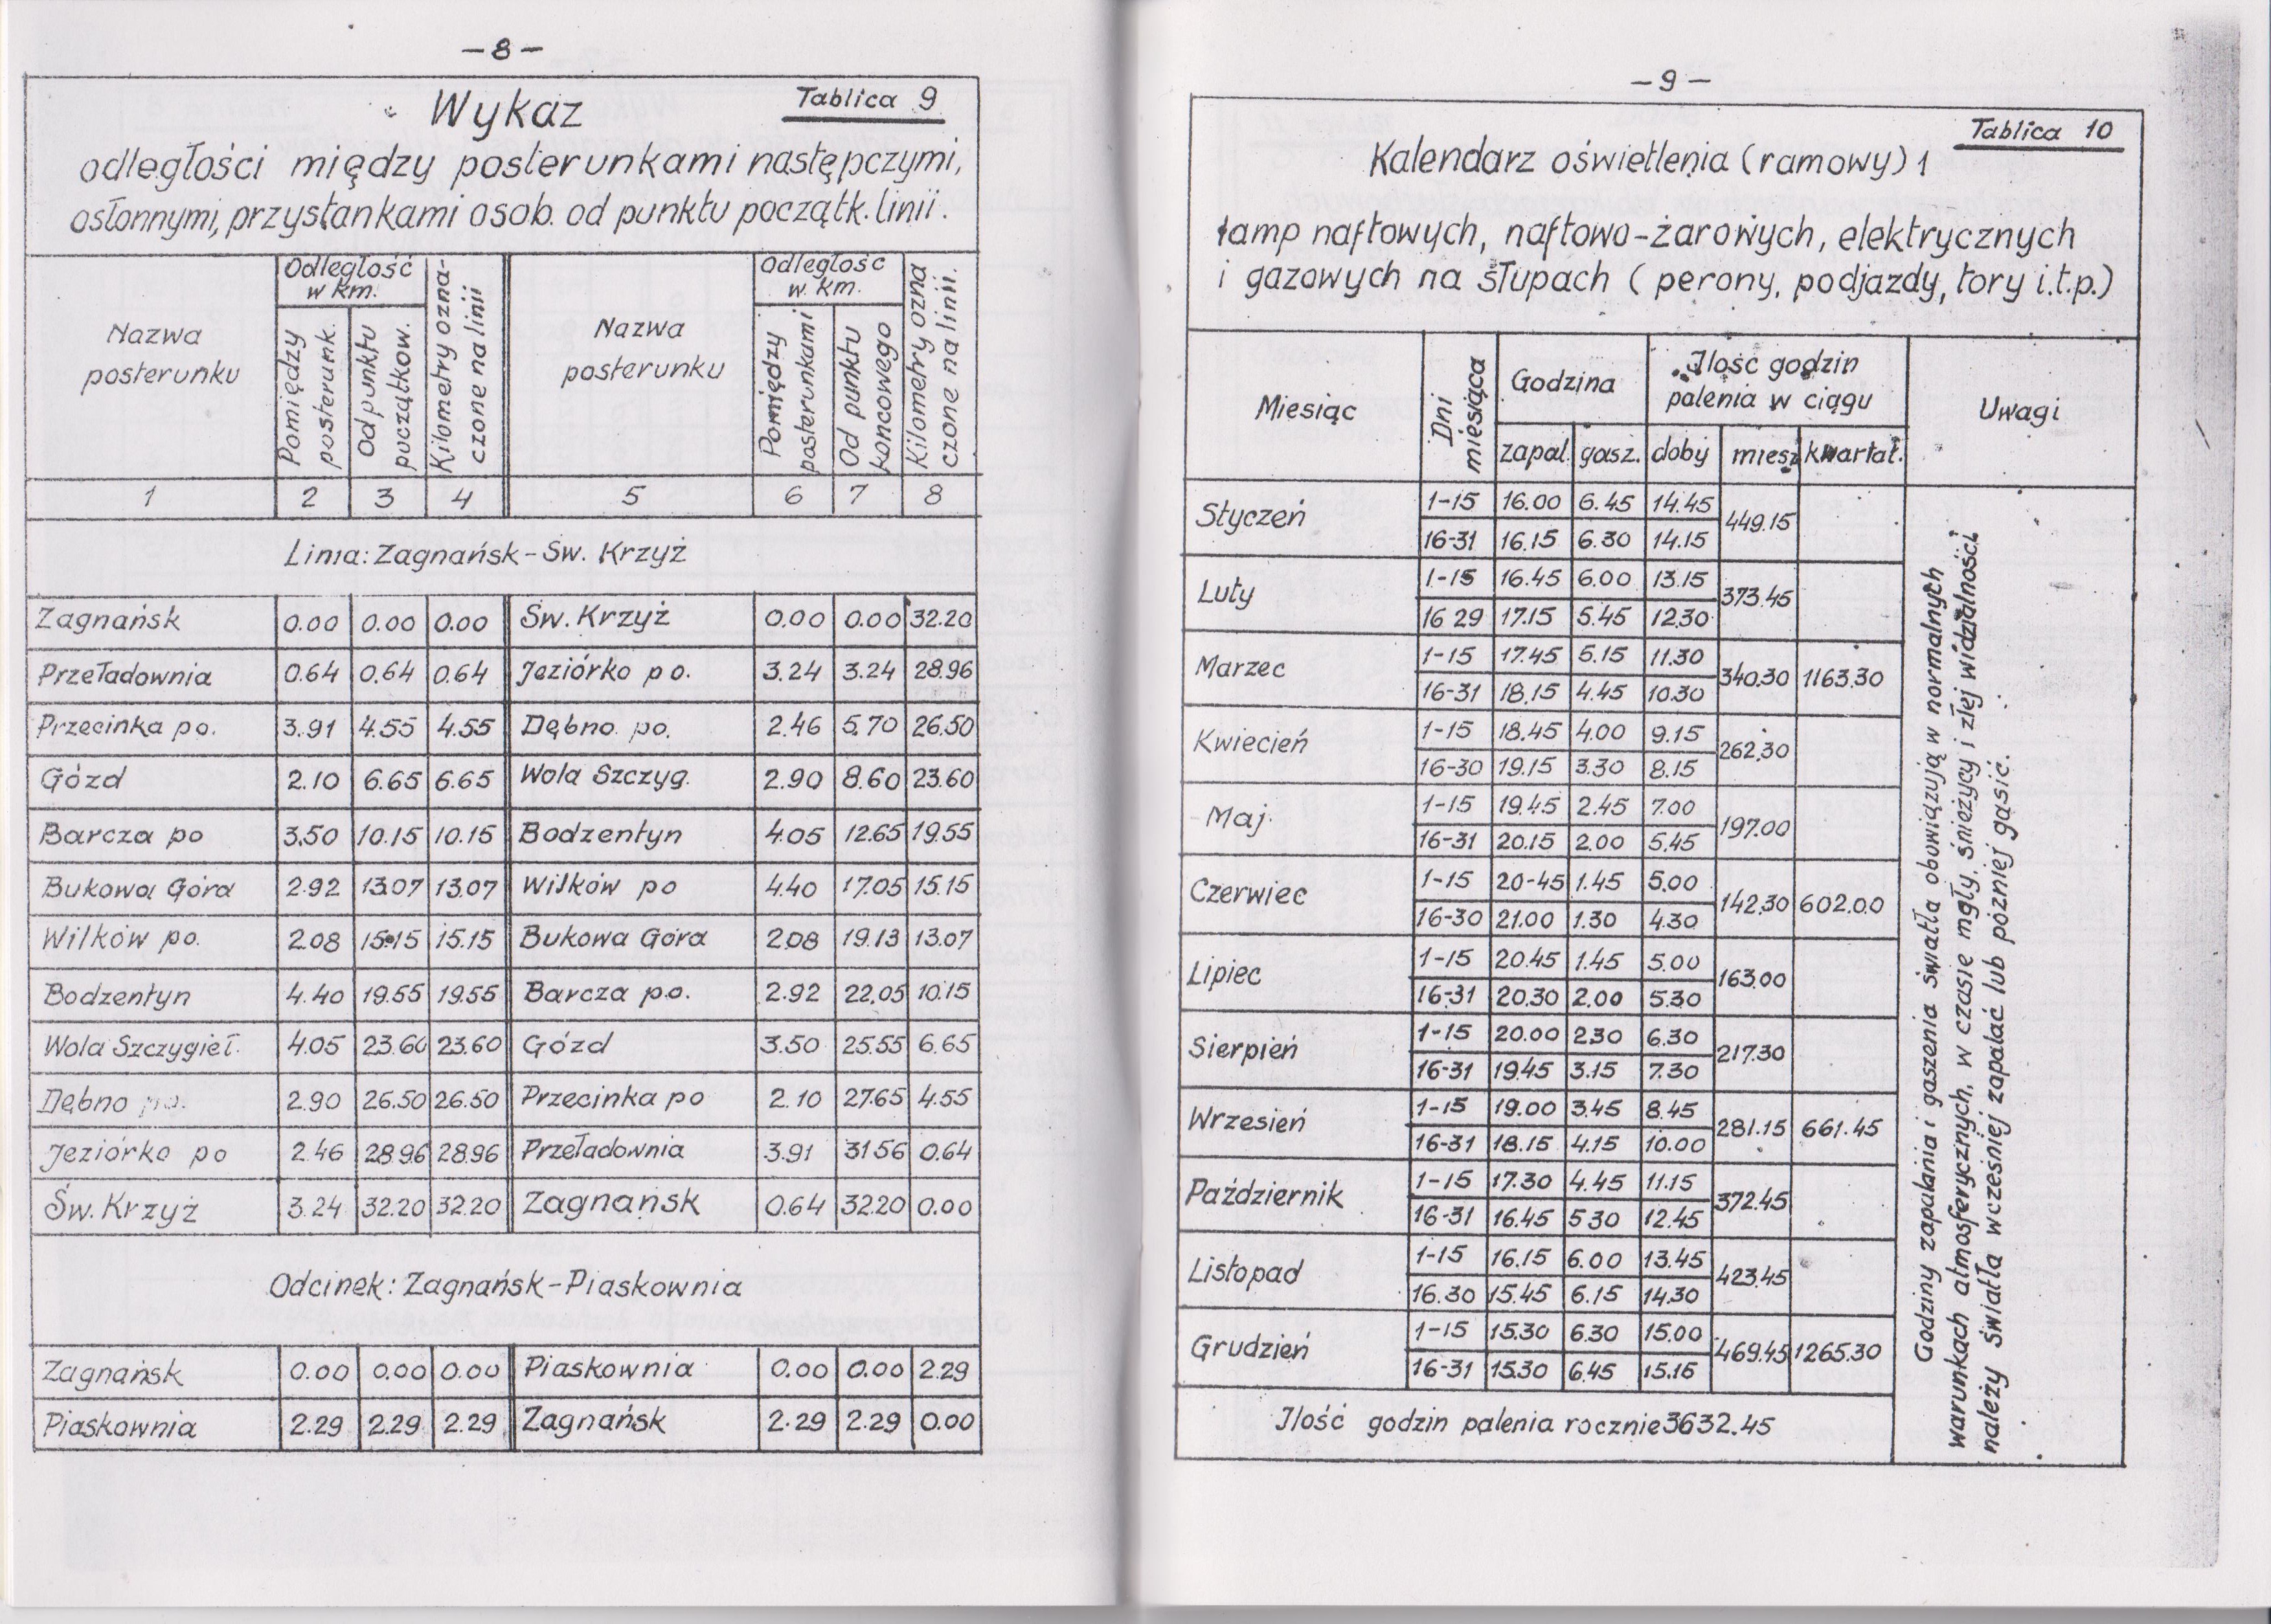 – 8 –
Tablica 9
Wykaz
odległości między posterunkami następczymi,
osłonnymi, przystankami osob. od punktu początk. linii.
Nazwa posterunku | Odległość w km. | Pomiędzy posterunk. | Od punktu początkow. | Kilometry ozna-czone na linii | Nazwa posterunku | Odległość w km. | Pomiędzy posterunkami | Od punktu koncowego | Kilometry ozna czone na linii.
1 2 3 4 5 6 7 8
Linia: Zagnańsk - Św. Krzyż
Zagnańsk 0.00 0.00 0.00 Św. Krzyż 0.00 0.00 32.20
Przeładownia 0.64 0.64 0.64 Jeziórko po. 3.24 3.24 28.96
Przecinka po. 3.91 4.55 4.55 Dębno po. 2.46 5.70 26.50
Gózd 2.10 6.65 6.65 Wola Szczyg. 2.90 8.60 23.60
Barcza po 3.50 10.15 10.15 Bodzentyn 4.05 12.65 19.55
Bukowa Góra 2.92 13.07 13.07 Wilków po 4.40 17.05 15.15
Wilków po. 2.08 15.15 15.15 Bukowa Góra 2.08 19.13 13.07
Bodzentyn 4.40 19.55 19.55 Barcza po. 2.92 22.05 10.15
Wola Szczygieł. 4.05 23.60 23.60 Gózd 3.50 25.55 6.65
Dębno po. 2.90 26.50 26.50 Przecinka po 2.10 27.65 4.55
Jeziórko po 2.46 28.96 28.96 Przeładownia 3.91 31.56 0.64
Św. Krzyż 3.24 32.20 32.20 Zagnańsk 0.64 32.20 0.00
Odcinek: Zagnańsk - Piaskownia
Zagnańsk 0.00 0.00 0.00 Piaskownia 0.00 0.00 2.29
Piaskownia 2.29 2.29 2.29 Zagnańsk 2.29 2.29 0.00
– 9 –
Tablica 10
Kalendarz oświetlenia (ramowy) 1
łamp naftowych, naftowo-żarowych, elektrycznych
i gazowych na słupach ( perony, podjazdy, tory i.t.p.)
Miesiąc | Dni miesiąca | Godzina | Ilość godzin palenia w ciągu | Uwagi
zapal. gasz. doby miesz kwartał.
Styczeń 1-15 16.00 6.45 14.45 449.15
16-31 16.15 6.30 14.15
Luty 1-15 16.45 6.00 13.15 373.45
16 29 17.15 5.45 12.30
Marzec 1-15 17.45 5.15 11.30 340.30 1163.30
16-31 18.15 4.45 10.30
Kwiecień 1-15 18.45 4.00 9.15 262.30
16-30 19.15 3.30 8.15
Maj 1-15 19.45 2.45 7.00 197.00
16-31 20.15 2.00 5.45
Czerwiec 1-15 20-45 1.45 5.00 142.30 602.00
16-30 21.00 1.30 4.30
Lipiec 1-15 20.45 1.45 5.00 163.00
16-31 20.30 2.00 5.30
Sierpień 1-15 20.00 2.30 6.30 217.30
16-31 19.45 3.15 7.30
Wrzesień 1-15 19.00 3.45 8.45 281.15 661.45
16-31 18.15 4.15 10.00
Październik 1-15 17.30 4.45 11.15 372.45
16-31 16.45 5 30 12.45
Listopad 1-15 16.15 6.00 13.45 423.45
16.30 15.45 6.15 14.30
Grudzień 1-15 15.30 6.30 15.00 469.45 1265.30
16-31 15.30 6.45 15.15
Ilość godzin palenia rocznie 3632.45
Godziny zapalania i gaszenia światła obowiązują w normalnych
warunkach atmosferycznych, w czasie mgły, śnieżycy i złej widzialności
należy światła wcześniej zapalać lub później gasić.